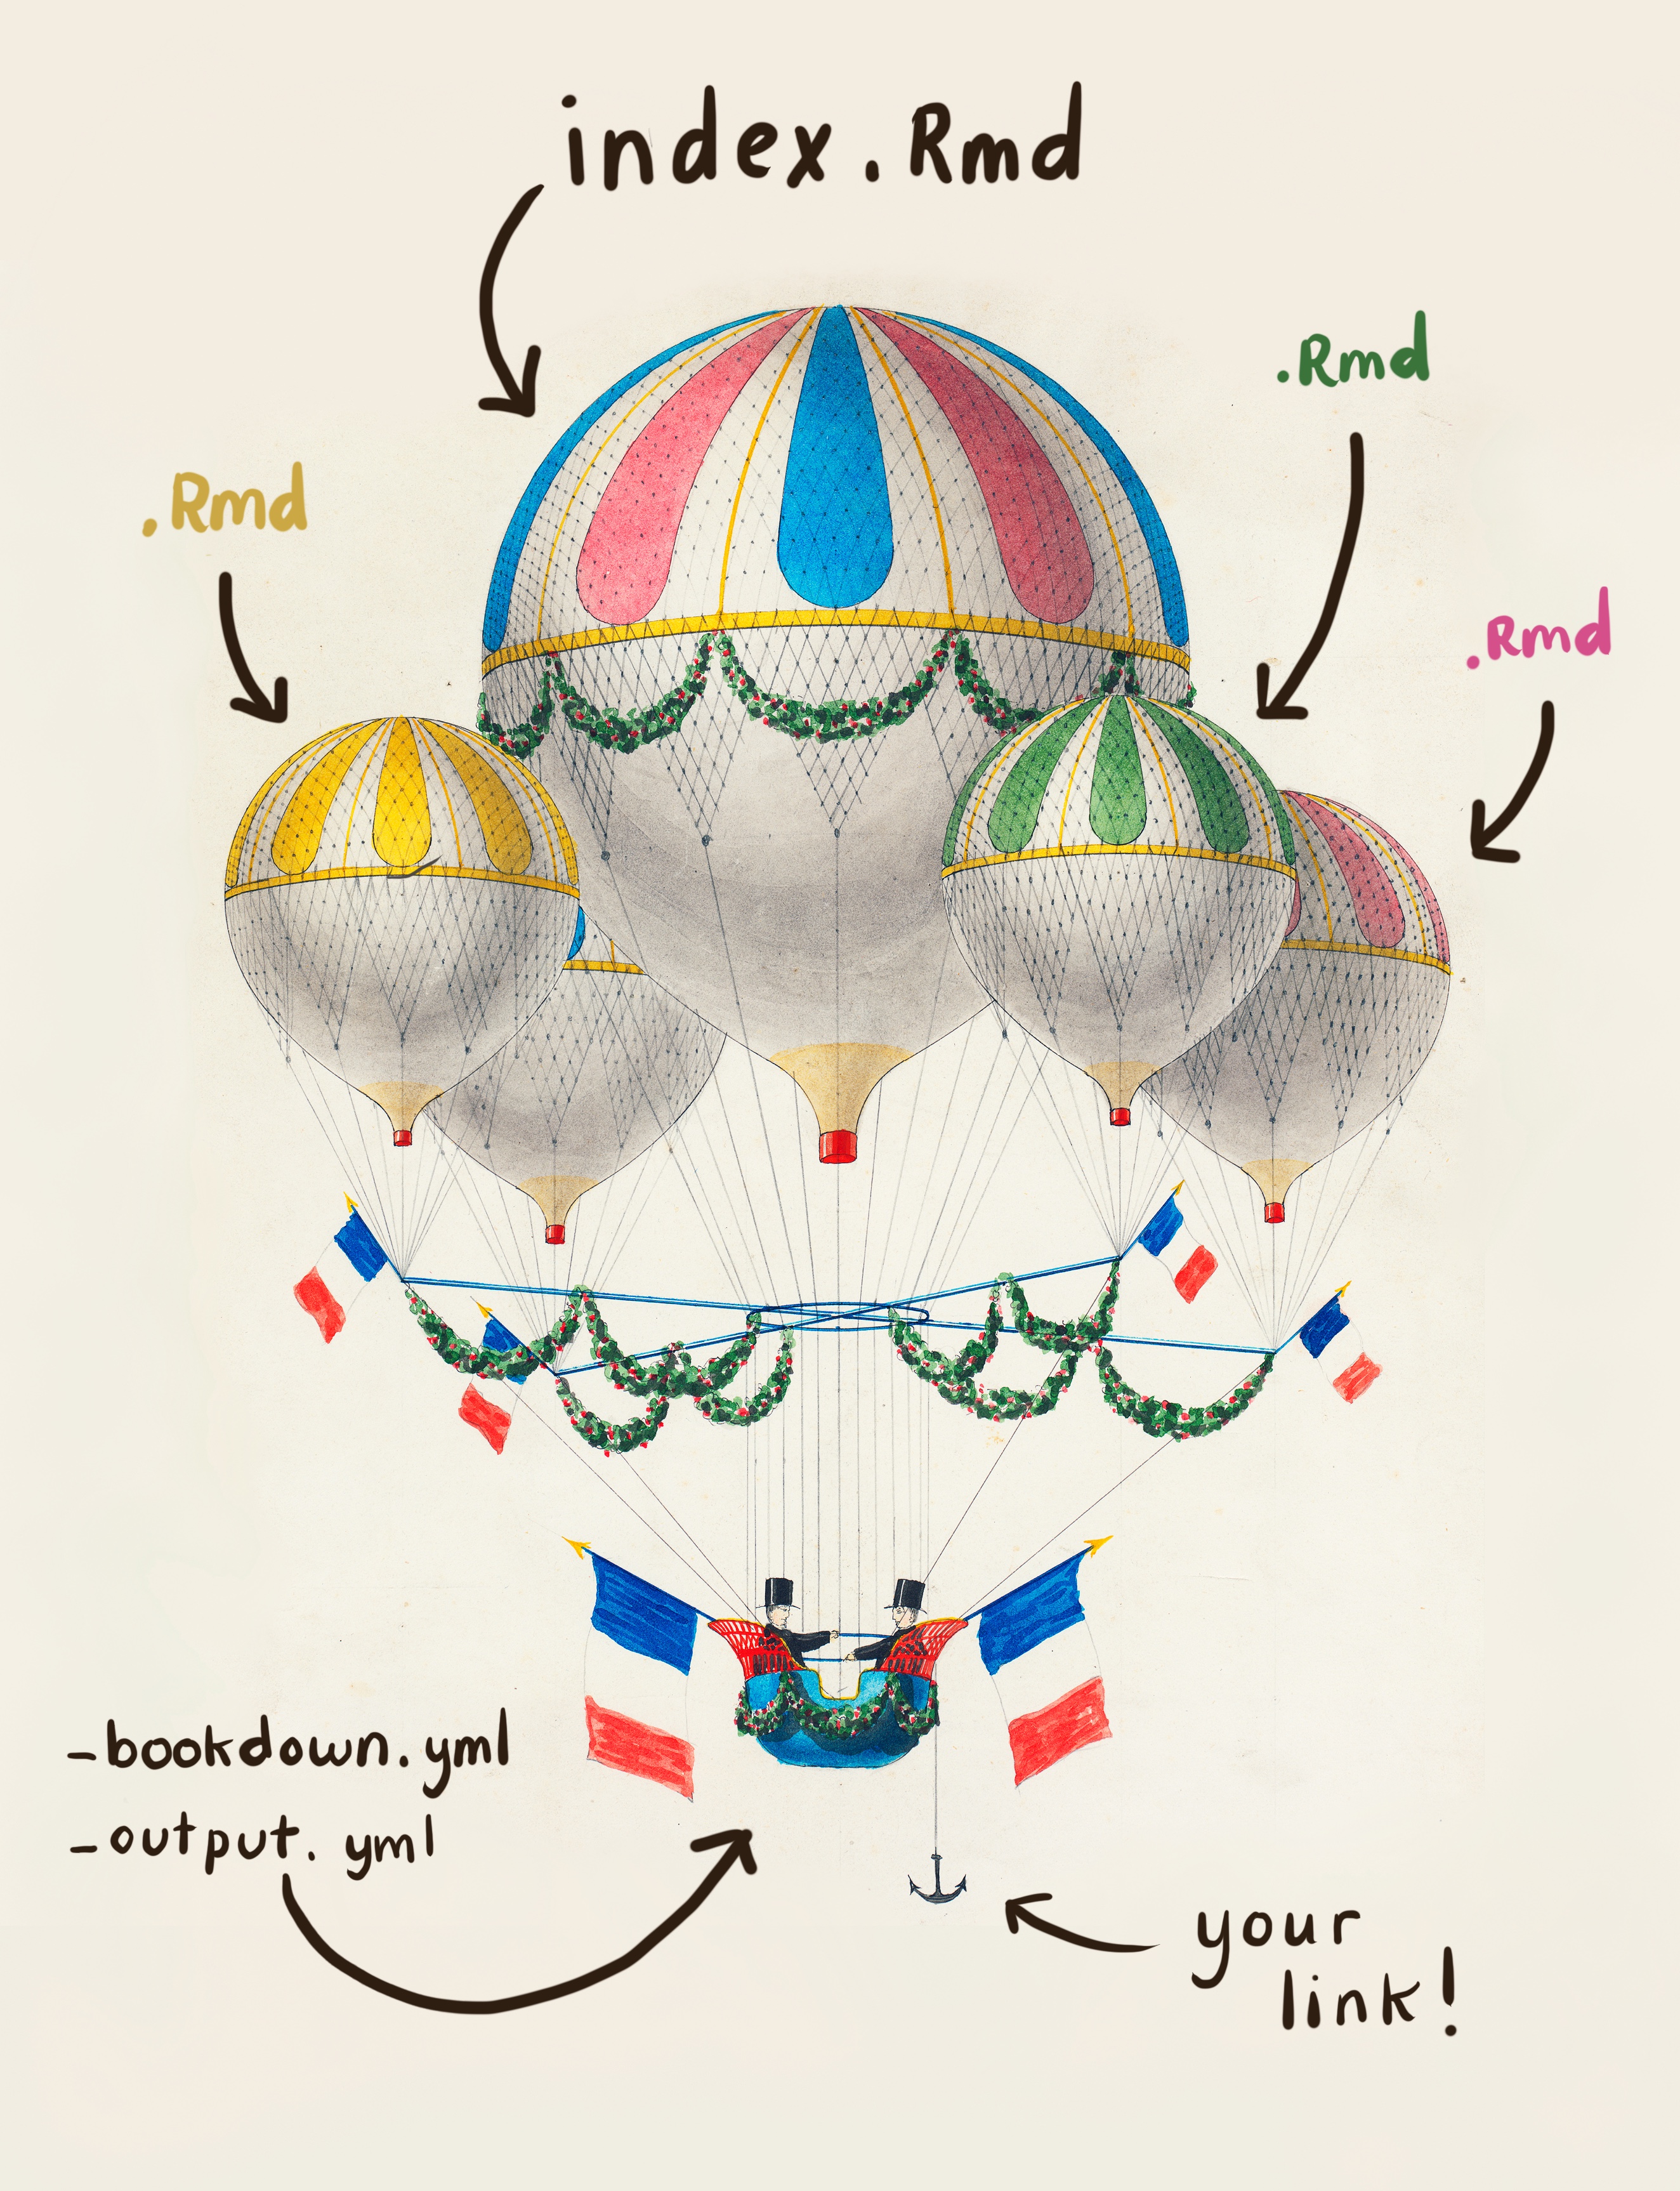 index.Rmd
.Rmd
.Rmd
.Rmd
_bookdown.yml
_output.yml
your
link!